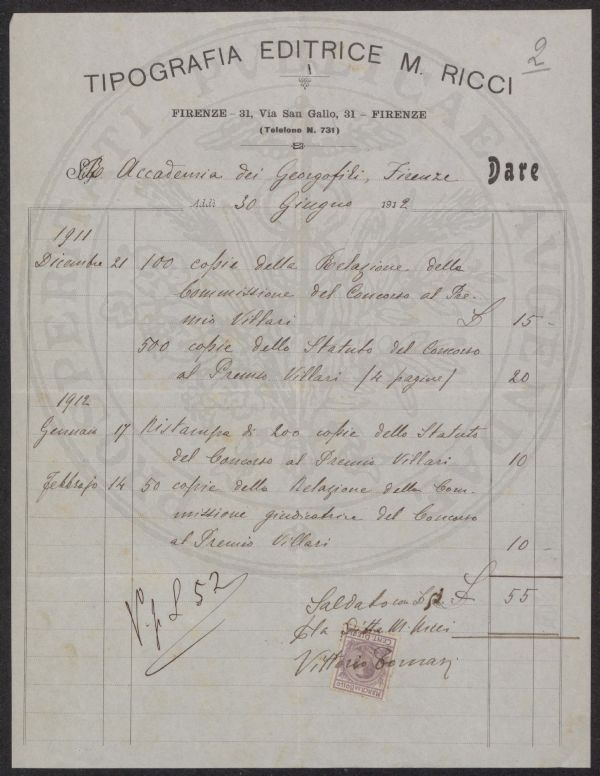 2
TIPOGRAFIA EDITRICE M. RICCI
FIRENZE - 31, Via San Gallo, 31 - FIRENZE
(Telefono N. 731)
R. Accademia dei Georgofili, Firenze Dare
Addì 30 Giugno 1912
1911
Dicembre 21 100 copie della Relazione della
Commissione del Concorso al Pre-
mio Villari £ 15 -
500 copie dello Statuto del Concorso
al Premio Villari (4 pagine) 20
1912
Gennaio 17 Ristampa di 200 copie dello Statuto
del Concorso al Premio Villari 10
Febbrajo 14 50 copie della Relazione della Com-
missione giudicatrice del Concorso
al Premio Villari 10 -
V. p. £ 52
Saldato con £ 52 £ 55
p la Ditta M. Ricci
Vittorio
MARCA DA BOLLO